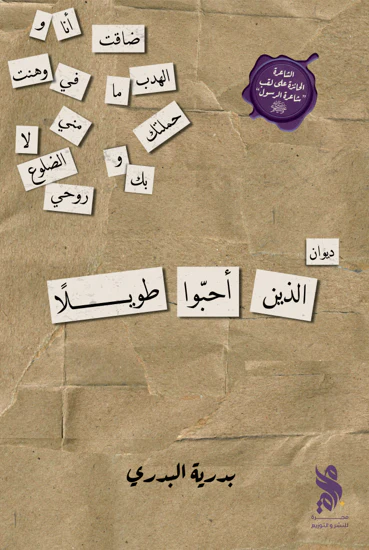 أنا
و
ضاقت
الهدب
ما
في
وهنت
حملتك
مني
لا
الضلوع
و
بك
روحي
الشاعرة
الحائزة على لقب
"شاعرة الرسول ﷺ"
ديوان
الذين أحبّوا طويلًا
بدرية البدري
للنشر والتوزيع